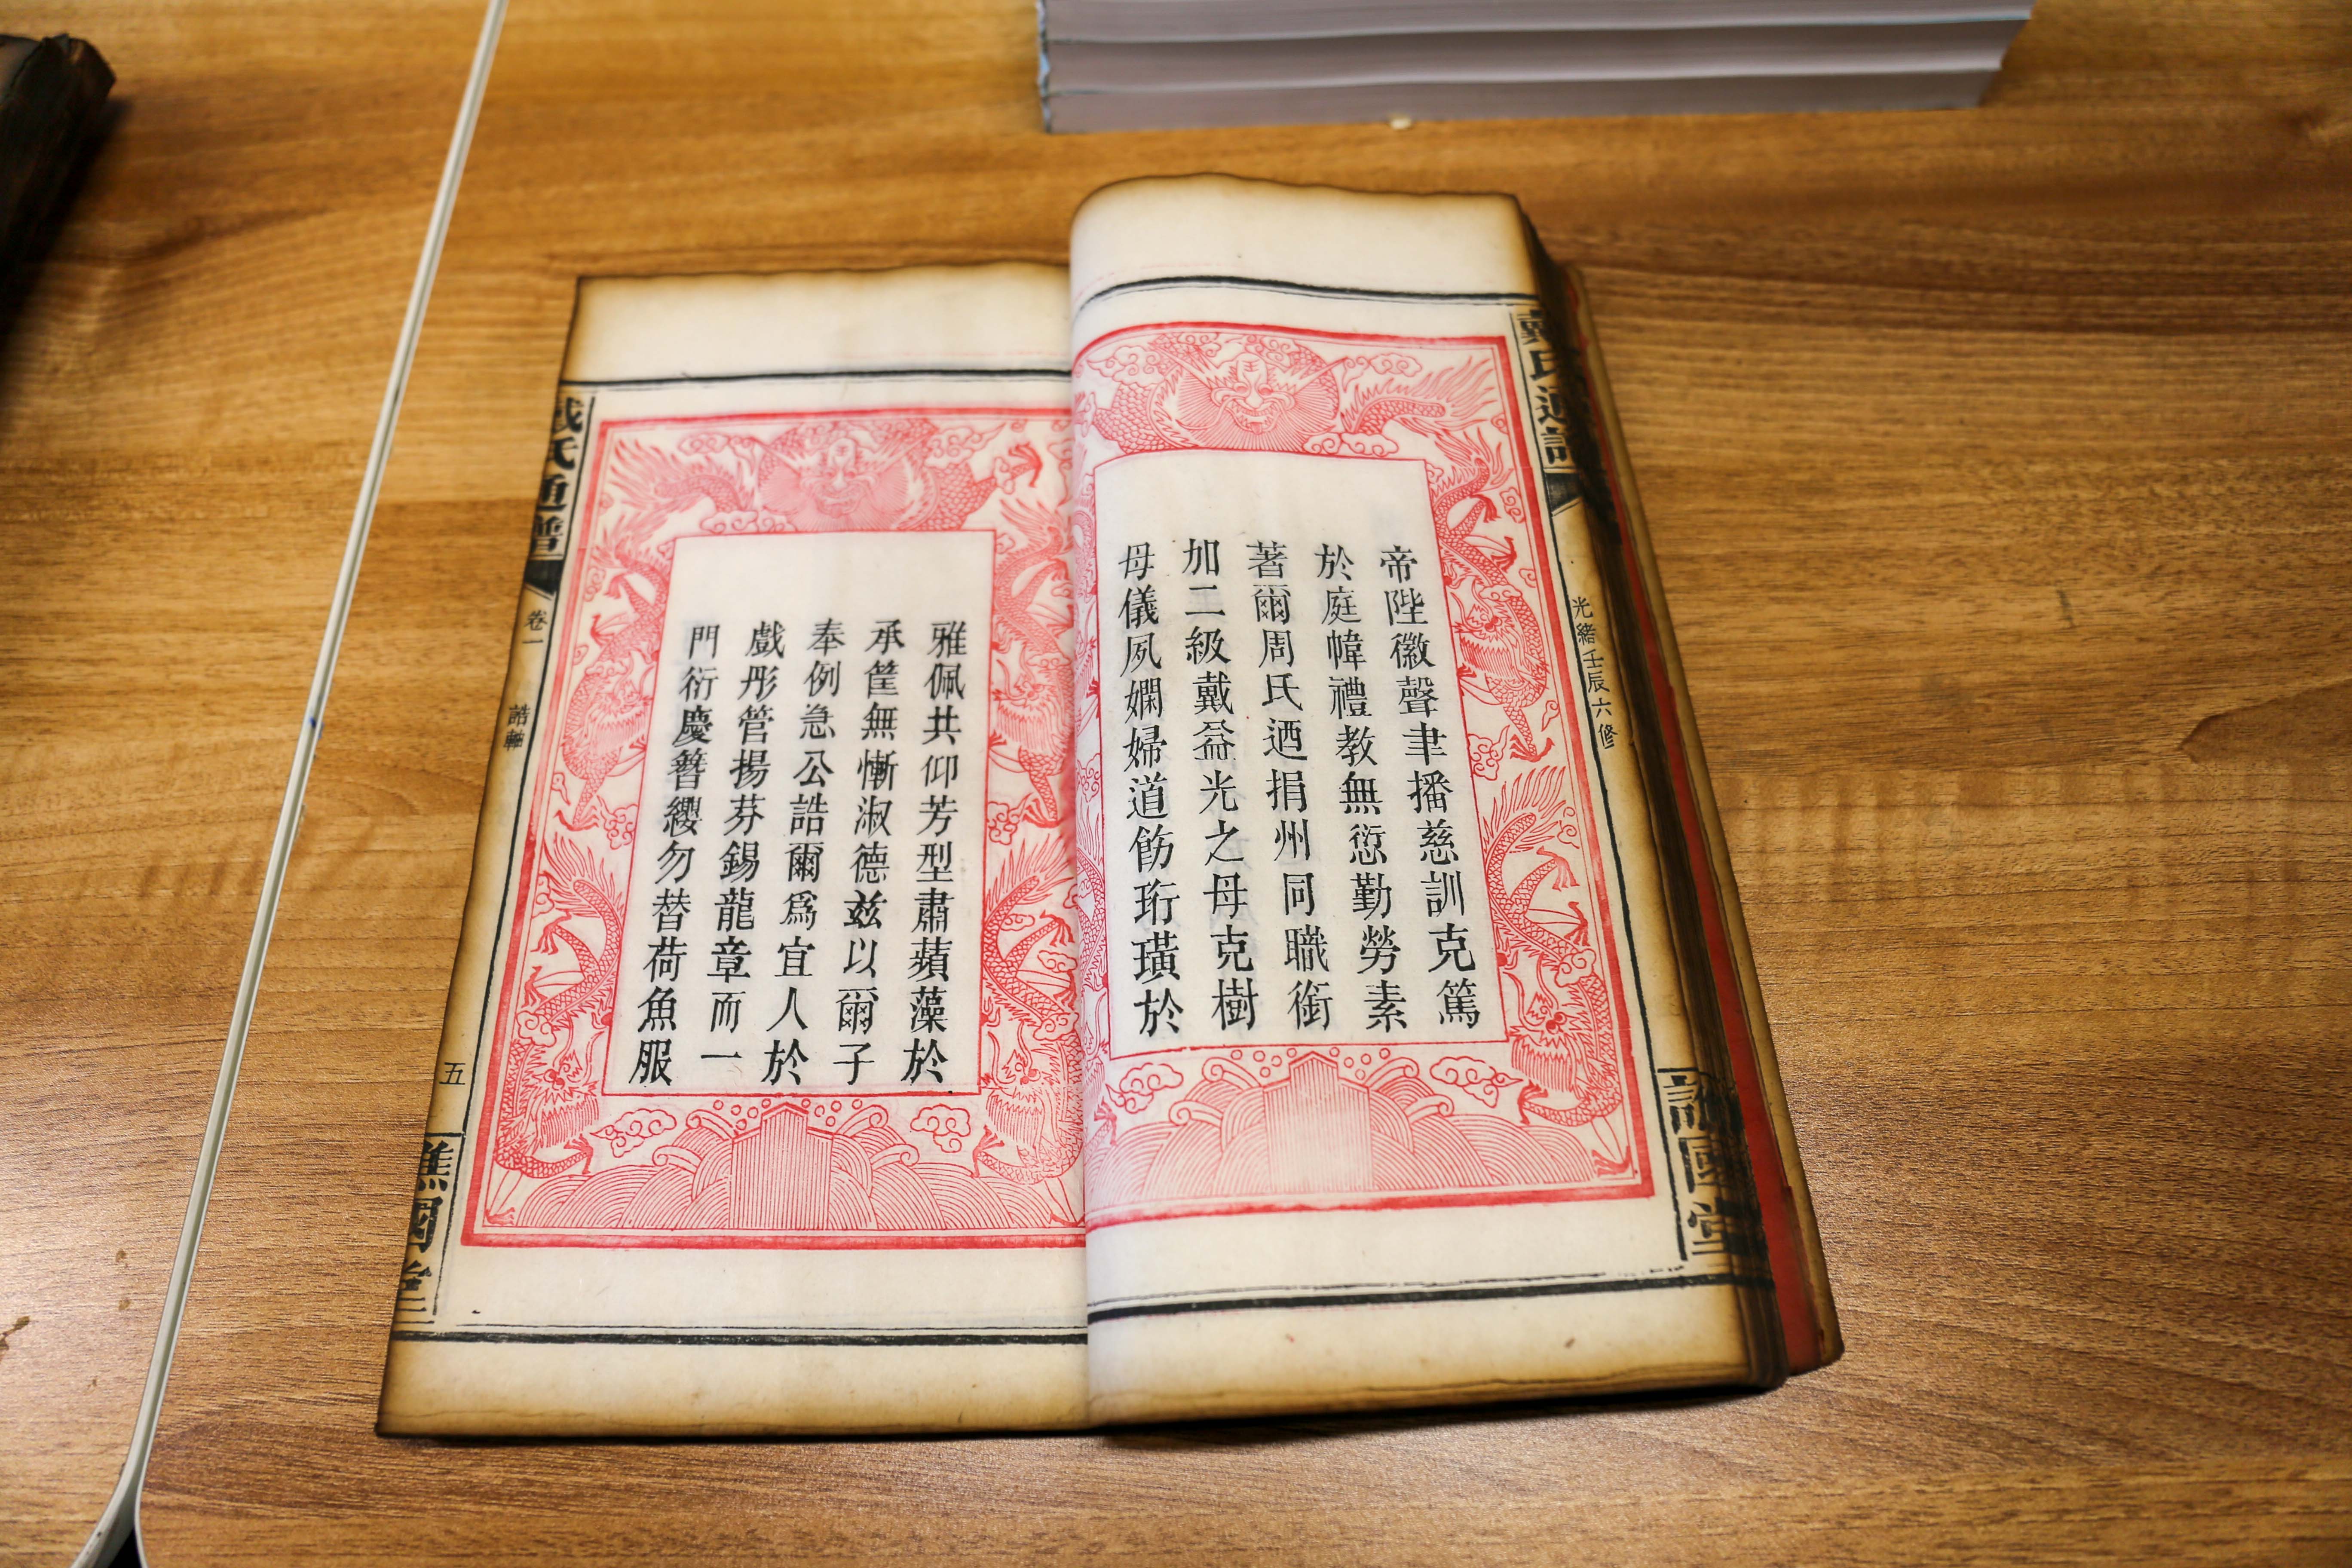 戴氏通譜
光緒壬辰六修
譙國堂
帝陛徽聲聿播慈訓克篤
於庭幃禮教無愆勤勞素
著爾周氏迺捐州同職銜
加二級戴益光之母克樹
母儀夙嫻婦道飭珩璜於
雅佩共仰芳型肅蘋藻於
承筐無慚淑德兹以爾子
奉例急公誥爾爲宜人於
戲彤管揚芬錫龍章而一
門衍慶簪纓勿替荷魚服
戴氏通譜
卷一
誥軸
五
譙國堂